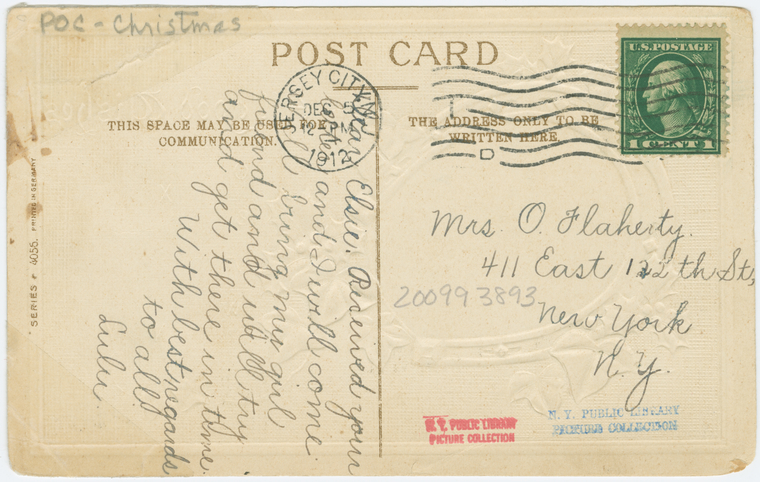 POC - Christmas
POST CARD
THIS SPACE MAY BE USED FOR
COMMUNICATION.
THE ADDRESS ONLY TO BE
WRITTEN HERE.
JERSEY CITY, N.J.
DEC 5
PM
1912
D
U.S. POSTAGE
1 CENT 1
Dear Elsie: Received your
letter and I will come
and I will bring my girl
friend and will try
and get there in time.
With best regards
to all
Lulu
Mrs. O. Flaherty.
411 East 122 th St.,
New York
N. Y.
200993893
N. Y. PUBLIC LIBRARY
PICTURE COLLECTION
N. Y. PUBLIC LIBRARY
PICTURE COLLECTION
SERIES 4055. PRINTED IN GERMANY